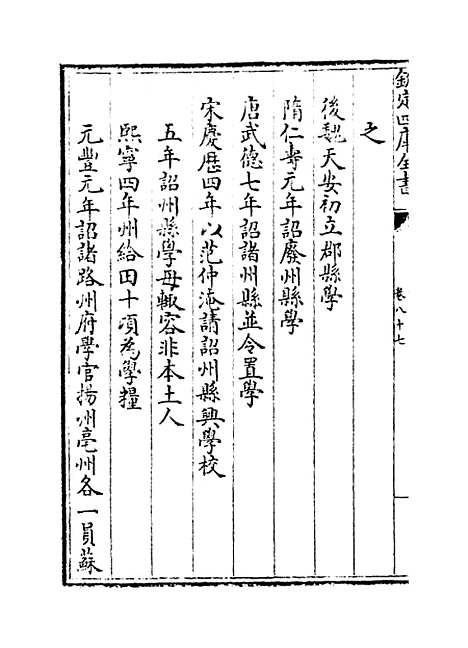 欽定四庫全書
卷八十七
之
後魏天安初立郡縣學
隋仁壽元年詔廢州縣學
唐武德七年詔諸州縣並令置學
宋慶歷四年以范仲淹請詔州縣興學校
五年詔州縣學毋輙容非本土人
熙寧四年州給田十頃為學糧
元豐元年詔諸路州府學官揚州亳州各一員蘇